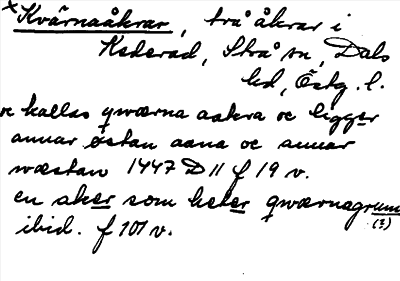 × Kvärnaåkrar, två åkrar i
Kederad, Strå sn, Dals
hd, Östg. l.
oc kallas qwærna aakra oc ligger
annar østan aana oc annar
wæstan 1447 D 11 f 19 v.
en aker som heter qwærnagrum
(?)
ibid. f 101 v.